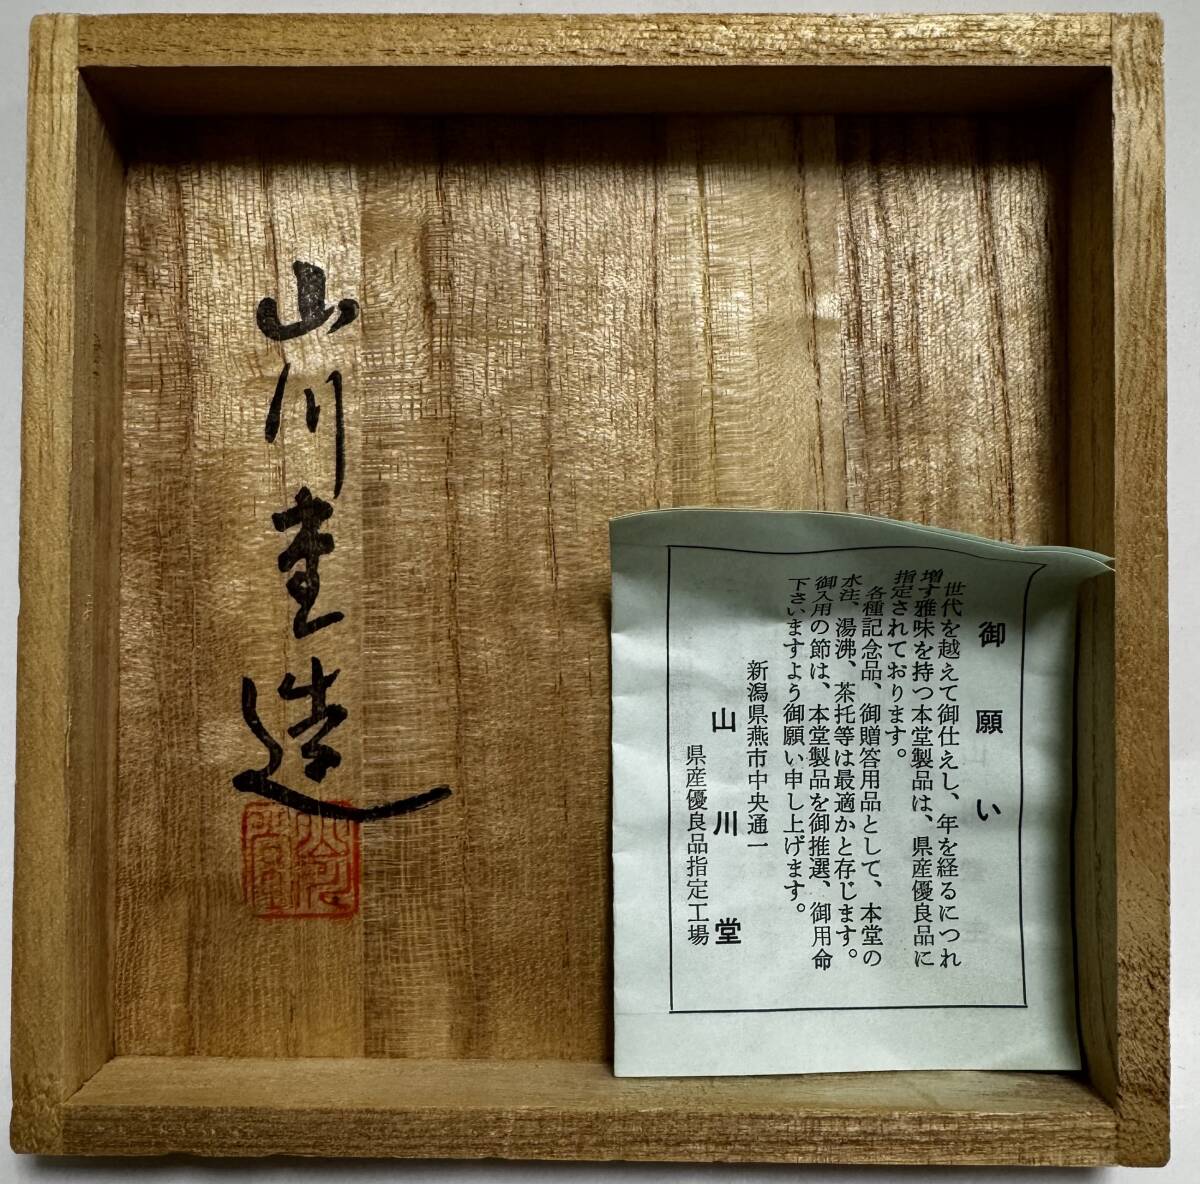 御願い
世代を越えて御仕えし、年を経るにつれ
増す雅味を持つ本堂製品は、県産優良品に
指定されております。
各種記念品、御贈答用品として、本堂の
水注、湯沸、茶托等は最適かと存じます。
御入用の節は、本堂製品を御推選、御用命
下さいますよう御願い申し上げます。
新潟県燕市中央通一
山川堂
県産優良品指定工場
山川圭造